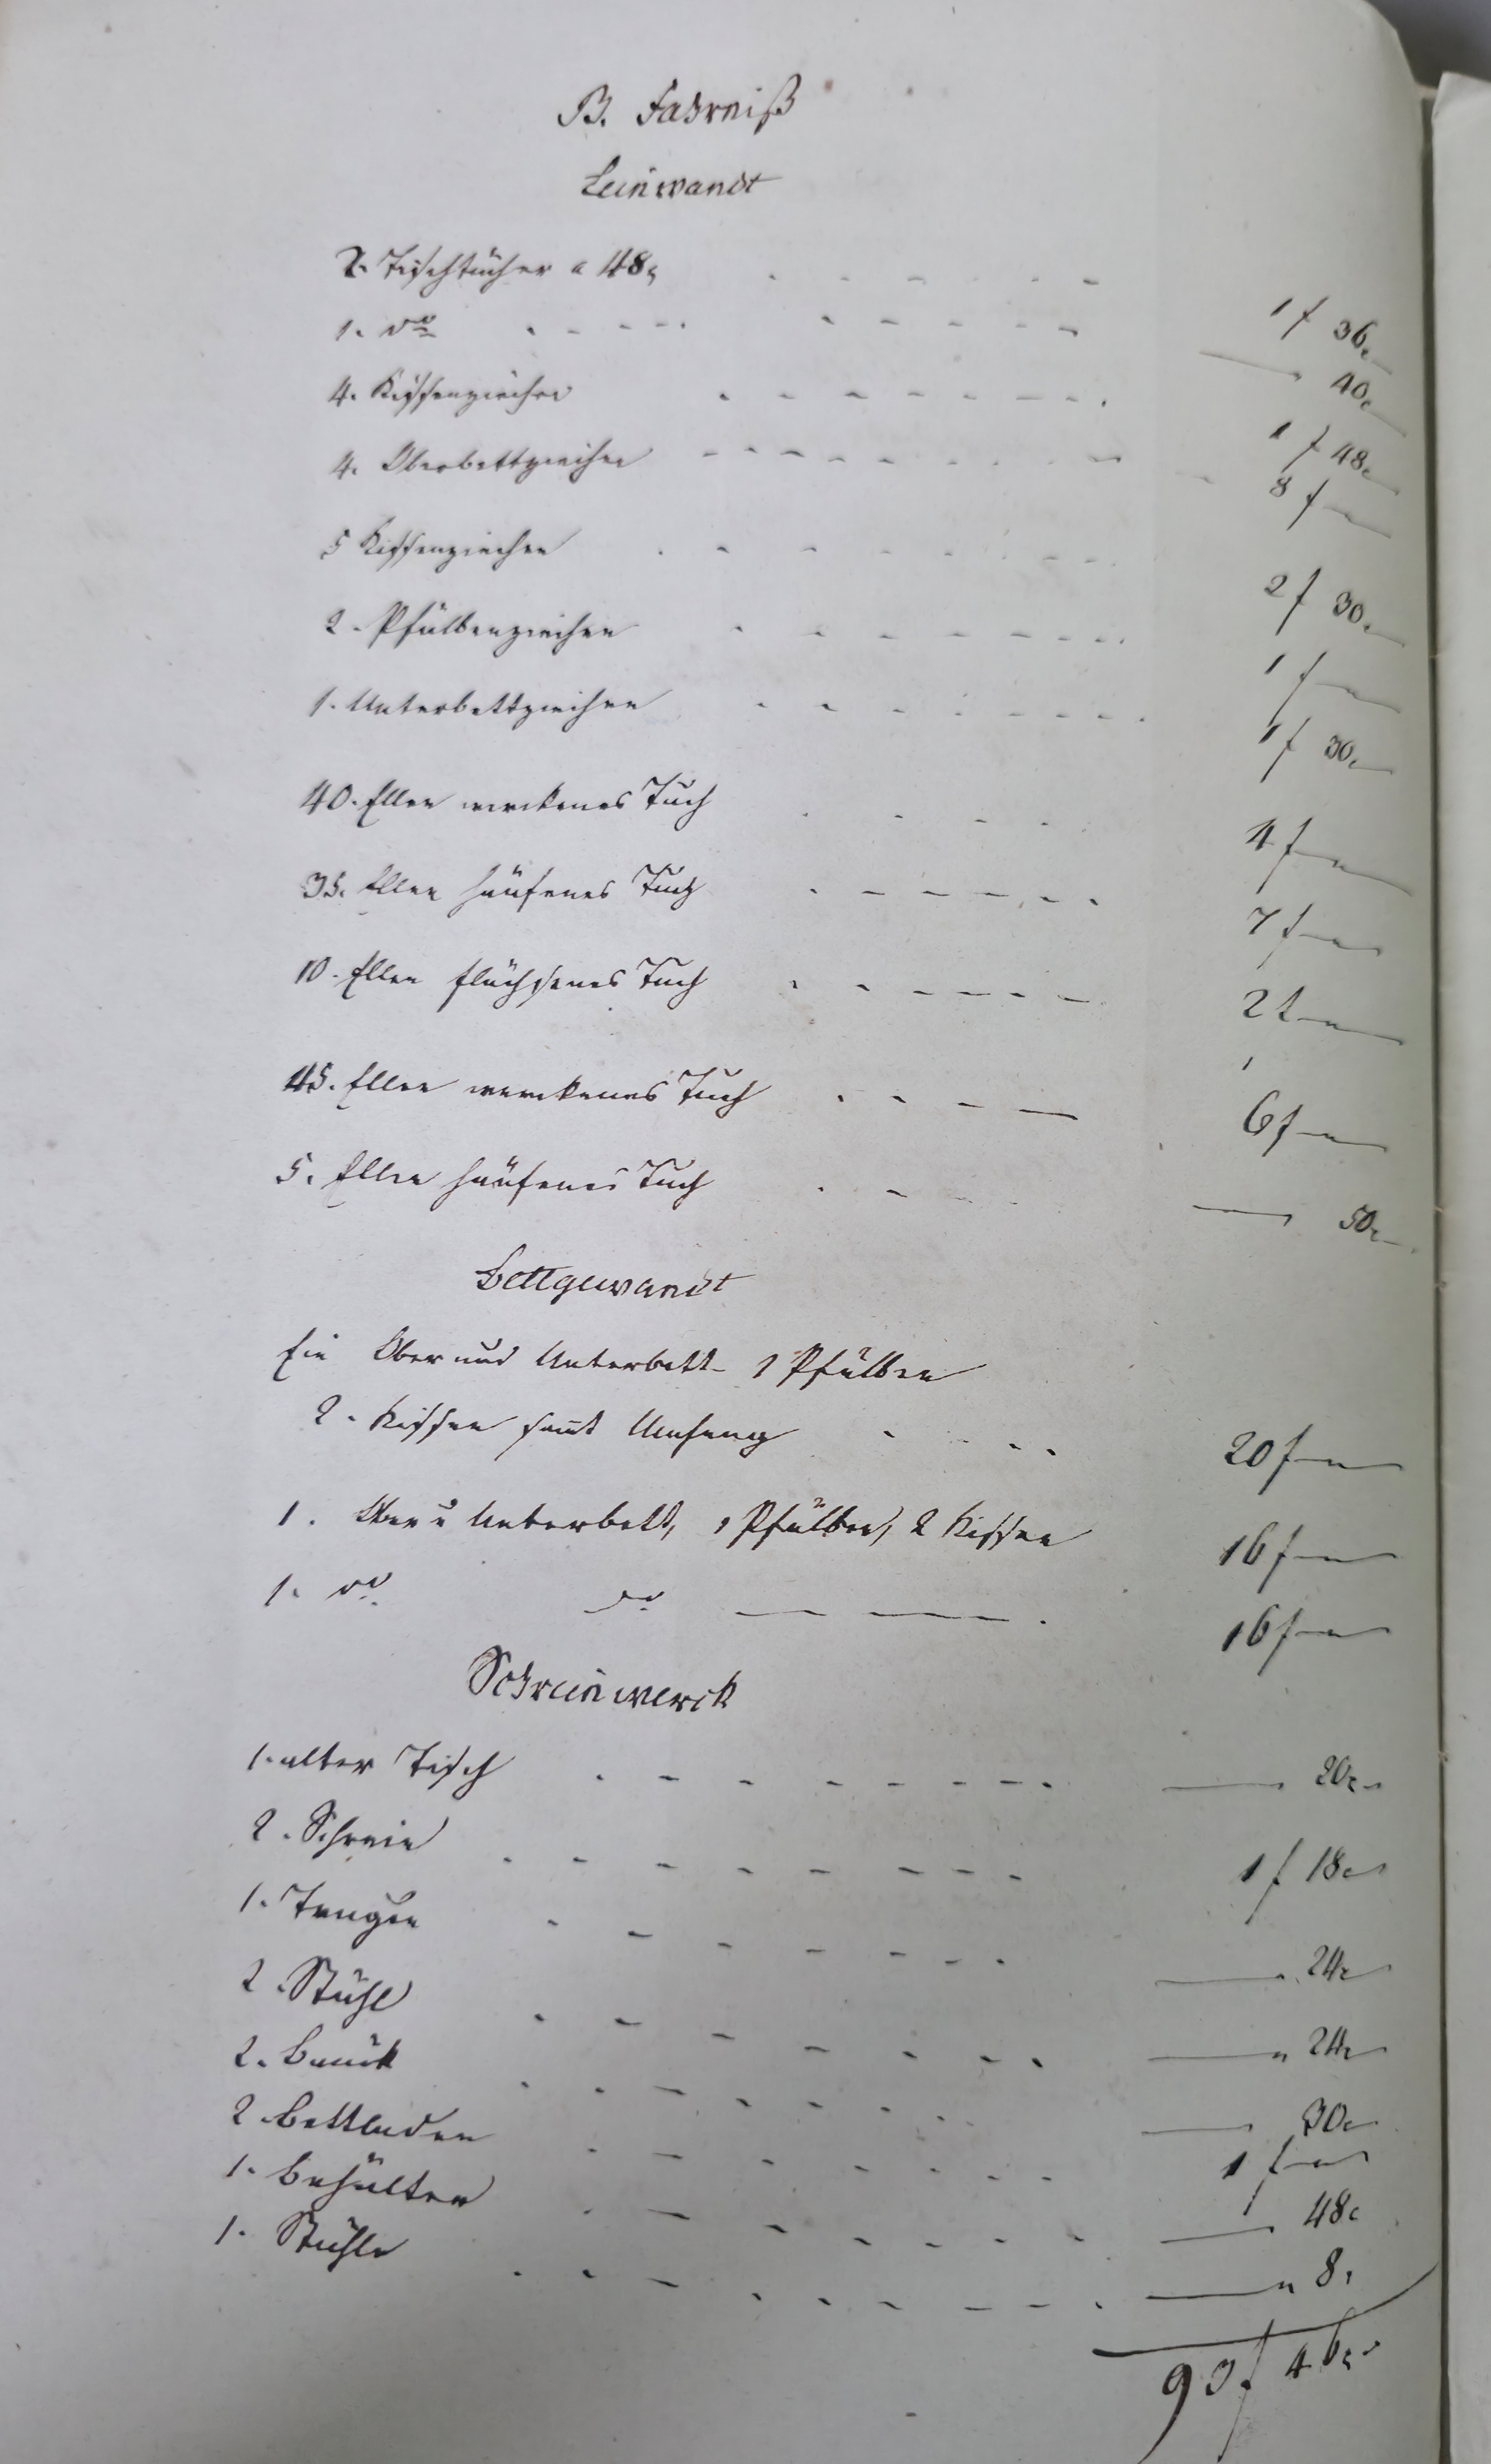 B. Fahrniß
Leinwandt
2. Tischtücher a 48x 1 f 36x
1. do 40x
4. Kissenziechen 1 f 48x
4. Oberbettziechen 8 f
5 Kissenziechen 2 f 30x
2. Pfülbenziechen 1 f
1. Unterbettziechen 1 f 30x
40. Ellen werckenes Tuch 4 f
35. Ellen häufenes Tuch 7 f
10. Ellen flächsenes Tuch 2 f
45. Ellen werckenes Tuch 6 f
5. Ellen häufenes Tuch 50x
Bettgewandt
Ein Ober und Unterbett 1 Pfülben
2. Kissen samt Umhang 20 f
1. Ober u Unterbett, 1 Pfülben, 2 Kissen 16 f
1. do do 16 f
Schreinwerck
1. alter Tisch 20x
2. Schrein 1 f 18x
1. 24x
2. Stühl 24x
2. Bänck 30x
2 Bettladen 1 f
1. Behälter 48x
1. Stuhle 8x
93 f 46x